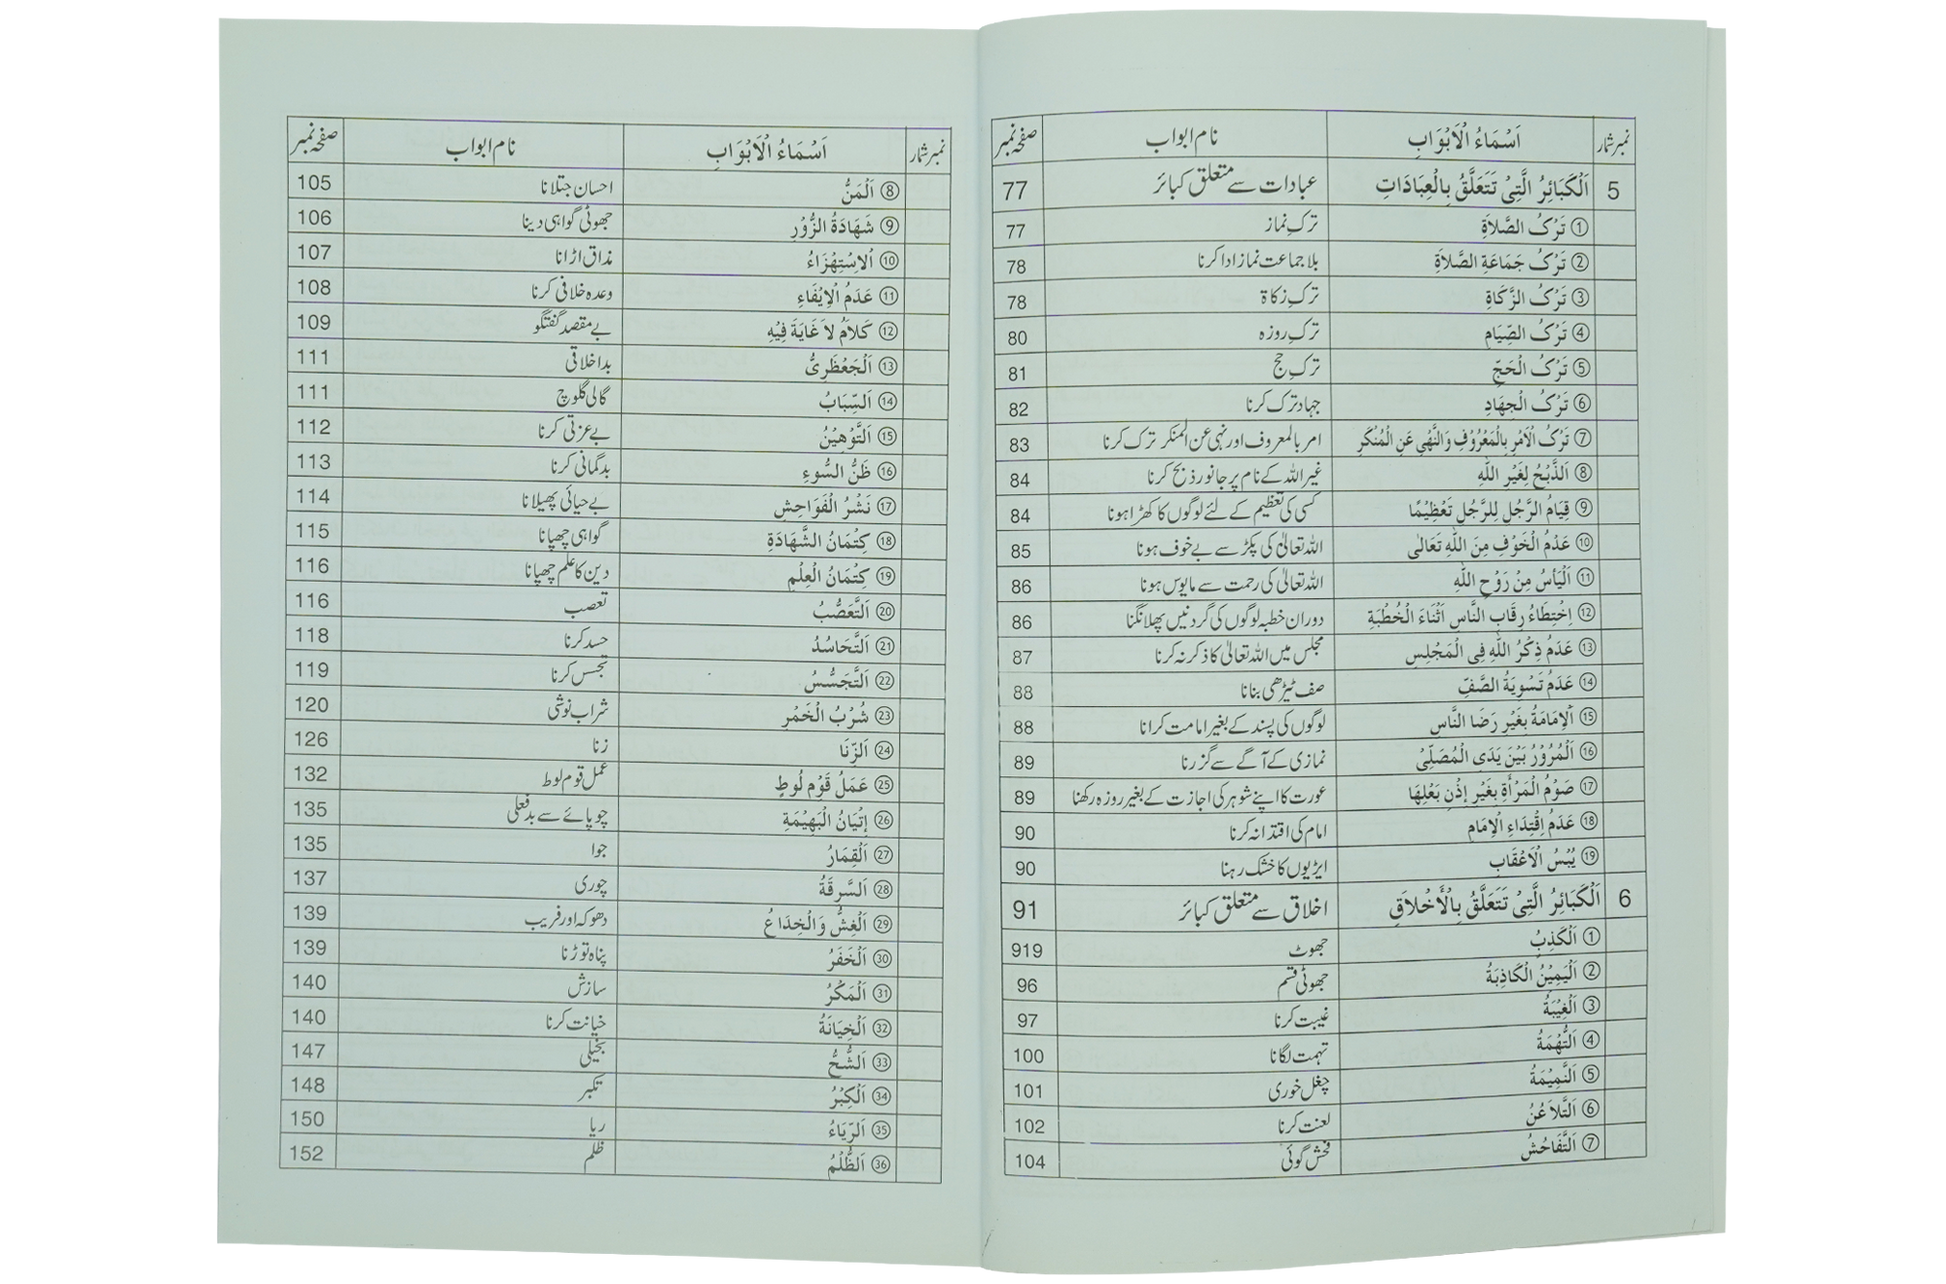 نمبر شمار اَسْمَاءُ الْاَبْوَابِ نام ابواب صفحہ نمبر
5 اَلْكَبَائِرُ الَّتِیْ تَتَعَلَّقُ بِالْعِبَادَاتِ عبادات سے متعلق کبائر 77
① تَرْکُ الصَّلاَةِ ترکِ نماز 77
② تَرْکُ جَمَاعَةِ الصَّلاَةِ بلا جماعت نماز ادا کرنا 78
③ تَرْکُ الزَّكَاةِ ترکِ زکاۃ 78
④ تَرْکُ الصِّيَامِ ترکِ روزہ 80
⑤ تَرْکُ الْحَجِّ ترکِ حج 81
⑥ تَرْکُ الْجِهَادِ جہاد ترک کرنا 82
⑦ تَرْکُ الْاَمْرِ بِالْمَعْرُوْفِ وَالنَّهْیِ عَنِ الْمُنْكَرِ امر بالمعروف اور نہی عن المنکر ترک کرنا 83
⑧ اَلذَّبْحُ لِغَيْرِ اللّٰهِ غیر اللہ کے نام پر جانور ذبح کرنا 84
⑨ قِيَامُ الرَّجُلِ لِلرَّجُلِ تَعْظِيْمًا کسی کی تعظیم کے لئے لوگوں کا کھڑا ہونا 84
⑩ عَدْمُ الْخَوْفِ مِنَ اللّٰهِ تَعَالٰی اللہ تعالیٰ کی پکڑ سے بے خوف ہونا 85
⑪ اَلْيَأْسُ مِنْ رَوْحِ اللّٰهِ اللہ تعالیٰ کی رحمت سے مایوس ہونا 86
⑫ اِخْتِطَاءُ رِقَابِ النَّاسِ اَثْنَاءَ الْخُطْبَةِ دوران خطبہ لوگوں کی گردنیں پھلانگنا 86
⑬ عَدَمُ ذِكْرُ اللّٰهِ فِی الْمَجْلِسِ مجلس میں اللہ تعالیٰ کا ذکر نہ کرنا 87
⑭ عَدَمُ تَسْوِيَةُ الصَّفِّ صف ٹیڑھی بنانا 88
⑮ اَلْاِمَامَةُ بِغَيْرِ رَضَا النَّاسِ لوگوں کی پسند کے بغیر امامت کرانا 88
⑯ اَلْمُرُوْرُ بَيْنَ يَدَیِ الْمُصَلِّیْ نمازی کے آگے سے گزرنا 89
⑰ صَوْمُ الْمَرْأَةِ بِغَيْرِ اِذْنِ بَعْلِهَا عورت کا اپنے شوہر کی اجازت کے بغیر روزہ رکھنا 89
⑱ عَدَمُ اِقْتِدَاءِ الْاِمَامِ امام کی اقتدا نہ کرنا 90
⑲ يُبْسُ الْاَعْقَابِ ایڑیوں کا خشک رہنا 90
6 اَلْكَبَائِرُ الَّتِیْ تَتَعَلَّقُ بِالْأَخْلاَقِ اخلاق سے متعلق کبائر 91
① اَلْكَذِبُ جھوٹ 919
② اَلْيَمِيْنُ الْكَاذِبَةُ جھوٹی قسم 96
③ اَلْغِيْبَةُ غیبت کرنا 97
④ اَلتُّهْمَةُ تہمت لگانا 100
⑤ اَلنَّمِيْمَةُ چغل خوری 101
⑥ اَلتَّلاَعُنُ لعنت کرنا 102
⑦ اَلتَّفَاحُشُ فحش گوئی 104
نمبر شمار اَسْمَاءُ الْاَبْوَابِ نام ابواب صفحہ نمبر
⑧ اَلْمَنُّ احسان جتلانا 105
⑨ شَهَادَةُ الزُّوْرِ جھوٹی گواہی دینا 106
⑩ اَلْاِسْتِهْزَاءُ مذاق اڑانا 107
⑪ عَدَمُ الْاِيْفَاءِ وعدہ خلافی کرنا 108
⑫ كَلاَمُ لاَ غَايَةَ فِيْهِ بے مقصد گفتگو 109
⑬ اَلْجَعْظَرِیُّ بداخلاقی 111
⑭ اَلسِّبَابُ گالی گلوچ 111
⑮ اَلتَّوْهِيْنُ بے عزتی کرنا 112
⑯ ظَنُّ السُّوءِ بدگمانی کرنا 113
⑰ نَشْرُ الْفَوَاحِشِ بے حیائی پھیلانا 114
⑱ كِتْمَانُ الشَّهَادَةِ گواہی چھپانا 115
⑲ كِتْمَانُ الْعِلْمِ دین کا علم چھپانا 116
⑳ اَلتَّعَصُّبُ تعصب 116
㉑ اَلتَّحَاسُدُ حسد کرنا 118
㉒ اَلتَّجَسُّسُ تجسس کرنا 119
㉓ شُرْبُ الْخَمْرِ شراب نوشی 120
㉔ اَلزِّنَا زنا 126
㉕ عَمَلُ قَوْمِ لُوطٍ عمل قوم لوط 132
㉖ اِتْيَانُ الْبَهِيْمَةِ چوپائے سے بدفعلی 135
㉗ اَلْقِمَارُ جوا 135
㉘ اَلسَّرِقَةُ چوری 137
㉙ اَلْغِشُّ وَالْخِدَاعُ دھوکہ اور فریب 139
㉚ اَلْخَفَرُ پناہ توڑنا 139
㉛ اَلْمَكْرُ سازش 140
㉜ اَلْخِيَانَةُ خیانت کرنا 140
㉝ اَلشُّحُّ بخیلی 147
㉞ اَلْكِبْرُ تکبر 148
㉟ اَلرِّيَاءُ ریا 150
㊱ اَلظُّلْمُ ظلم 152